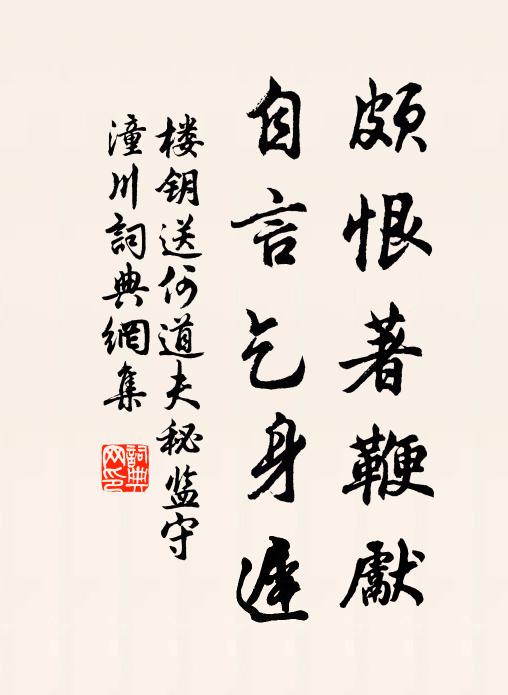 頗恨著鞭獻
自言乞身遲
楼钥送何道夫秘监守
潼川詞典網集
詞典
网印